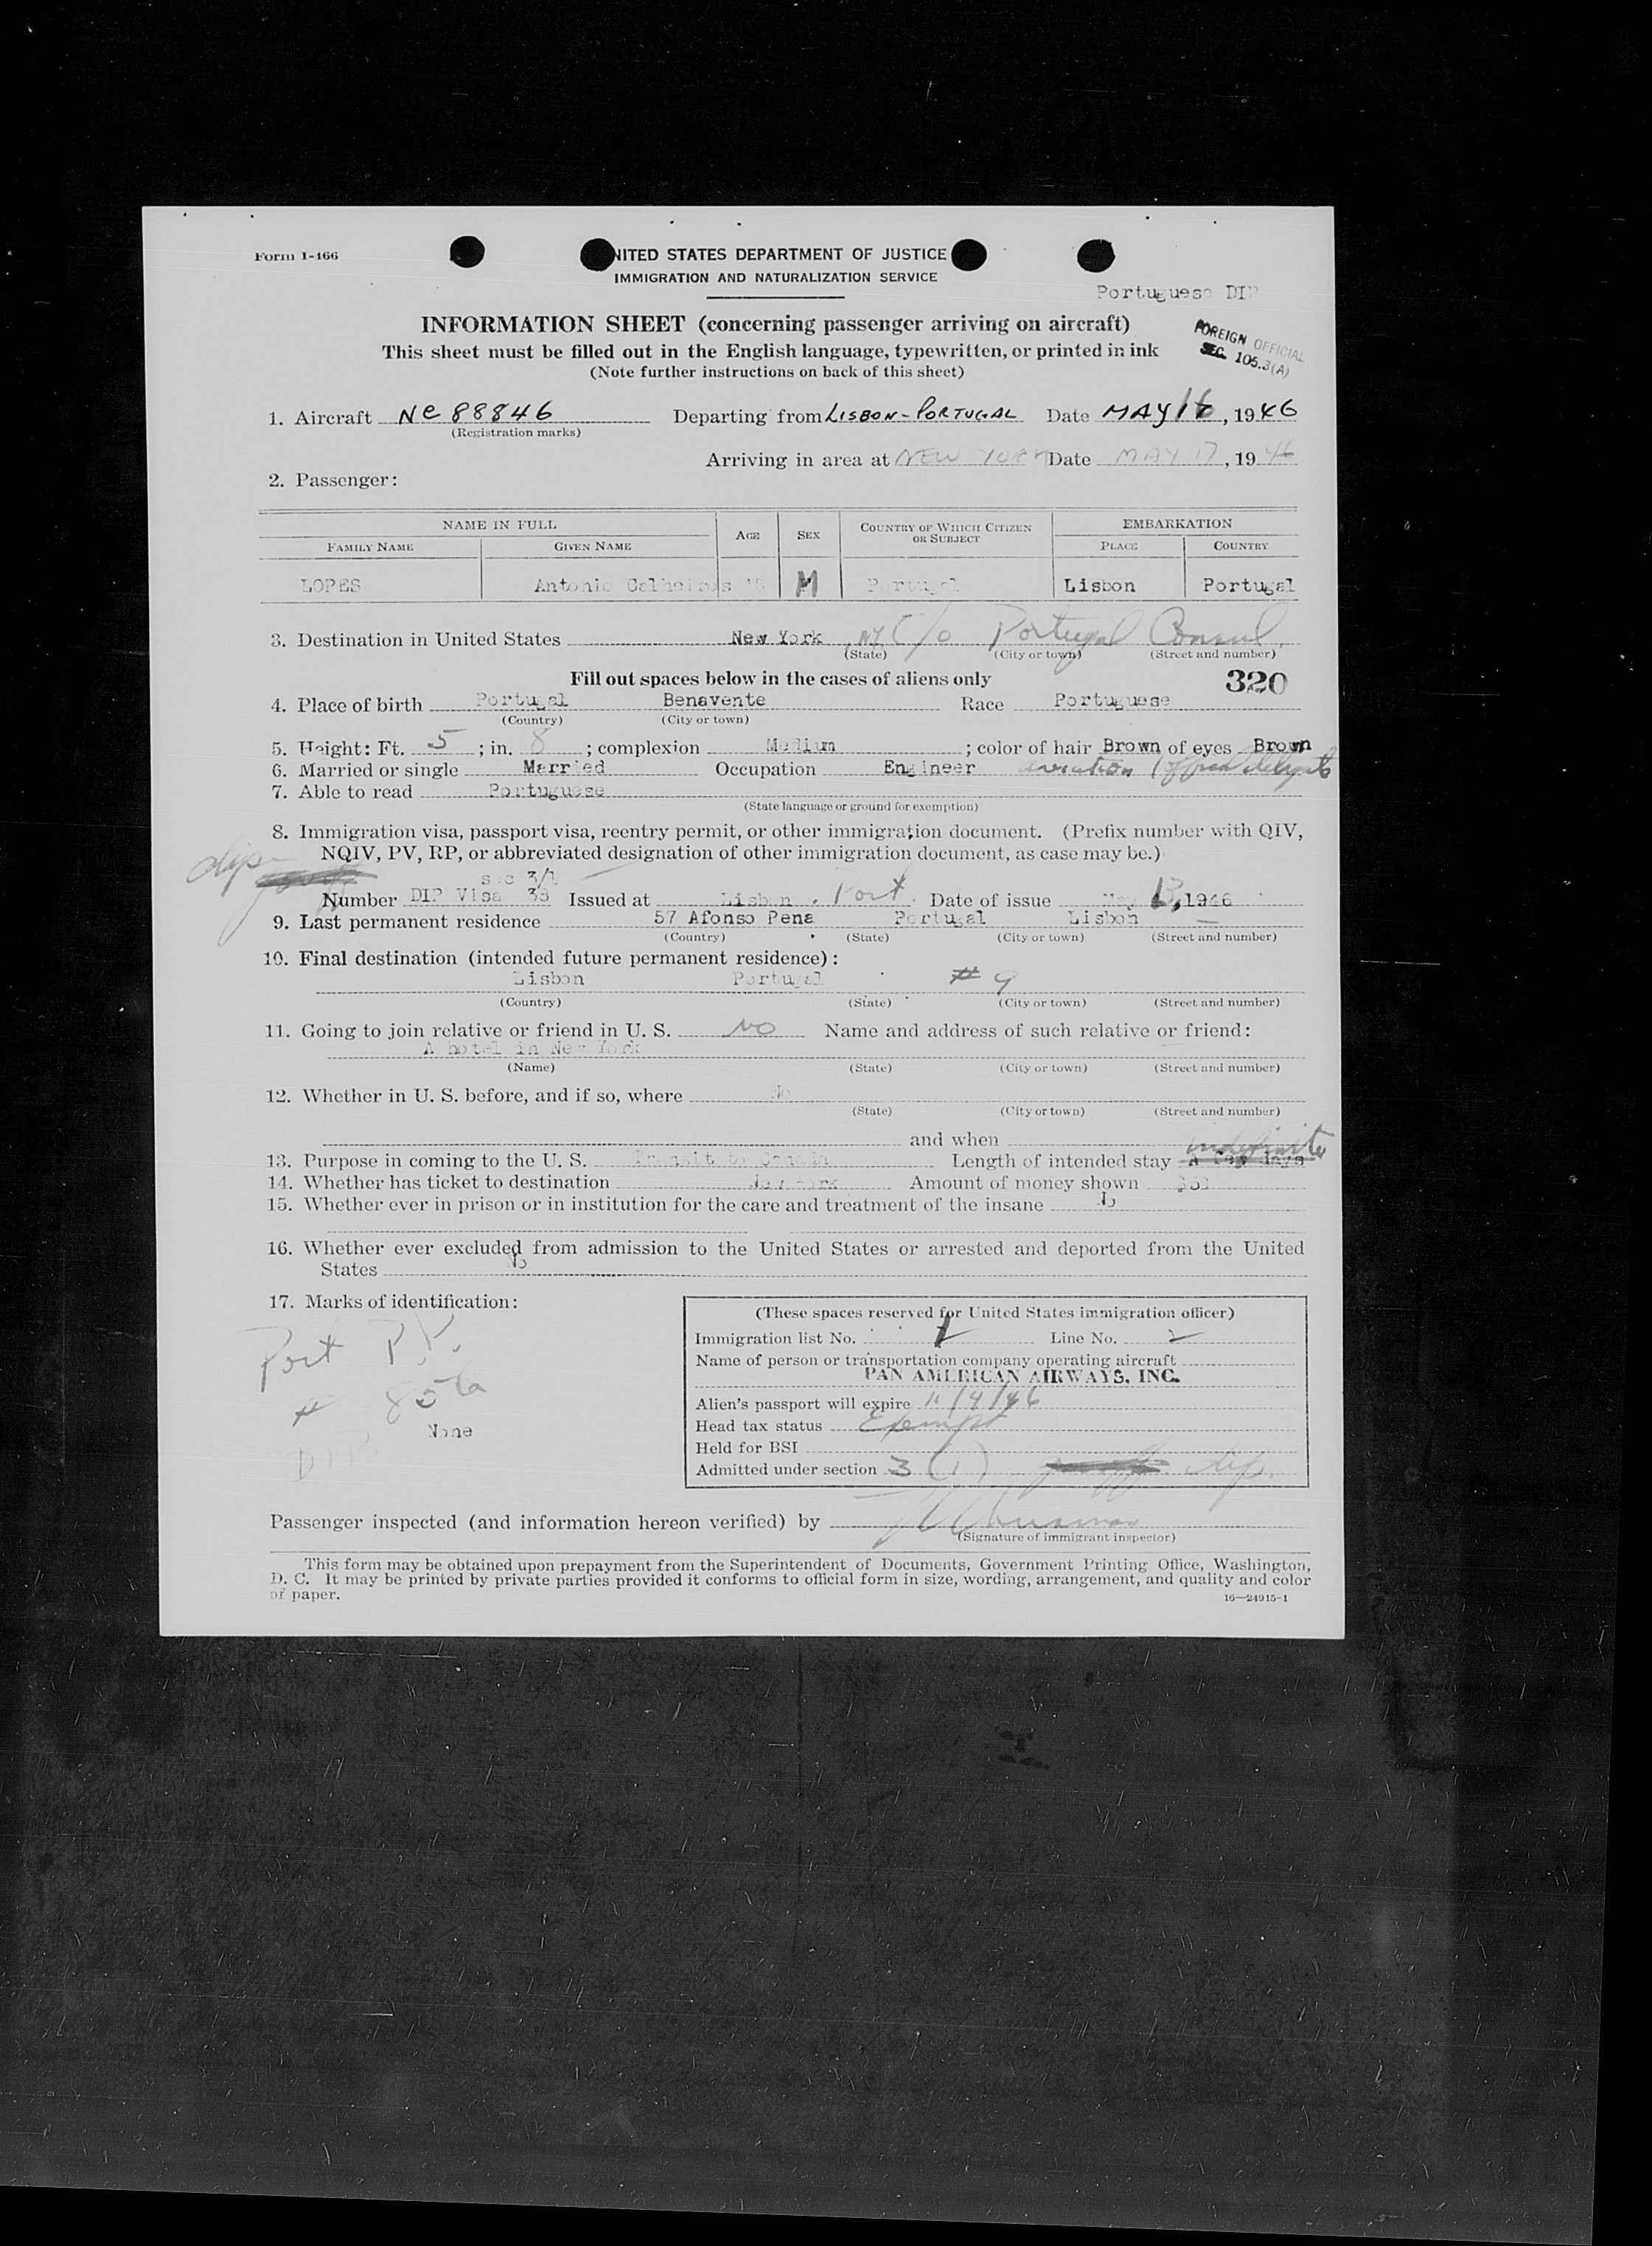 Form I-466
UNITED STATES DEPARTMENT OF JUSTICE
IMMIGRATION AND NATURALIZATION SERVICE
Portuguese DIP
INFORMATION SHEET (concerning passenger arriving on aircraft)
FOREIGN OFFICIAL
SEC. 105.3(A)
This sheet must be filled out in the English language, typewritten, or printed in ink
(Note further instructions on back of this sheet)
1. Aircraft NC 88846 Departing from LISBON-PORTUGAL Date MAY 16, 1946
(Registration marks)
Arriving in area at NEW YORK Date MAY 17, 1946
2. Passenger:
NAME IN FULL AGE SEX COUNTRY OF WHICH CITIZEN OR SUBJECT EMBARKATION
FAMILY NAME GIVEN NAME PLACE COUNTRY
LOPES Antonio Calheiros M Portugal Lisbon Portugal
3. Destination in United States New York NY C/o Portugal Consul
(State) (City or town) (Street and number)
Fill out spaces below in the cases of aliens only 320
4. Place of birth Portugal Benavente Race Portuguese
(Country) (City or town)
5. Height: Ft. 5; in. 8; complexion Medium; color of hair Brown of eyes Brown
6. Married or single Married Occupation Engineer
7. Able to read Portuguese
(State language or ground for exemption)
8. Immigration visa, passport visa, reentry permit, or other immigration document. (Prefix number with QIV,
NQIV, PV, RP, or abbreviated designation of other immigration document, as case may be.)
dip
sec 3/1
Number DIP Visa 38 Issued at Lisbon, Port. Date of issue May 13, 1946
9. Last permanent residence 57 Afonso Pena Portugal Lisbon
(Country) (State) (City or town) (Street and number)
10. Final destination (intended future permanent residence):
Lisbon Portugal # 9
(Country) (State) (City or town) (Street and number)
11. Going to join relative or friend in U. S. NO Name and address of such relative or friend:
A hotel in New York
(Name) (State) (City or town) (Street and number)
12. Whether in U. S. before, and if so, where No
(State) (City or town) (Street and number)
and when
13. Purpose in coming to the U. S. Transit to Canada Length of intended stay A few days indefinite
14. Whether has ticket to destination New York Amount of money shown
15. Whether ever in prison or in institution for the care and treatment of the insane No
16. Whether ever excluded from admission to the United States or arrested and deported from the United
States No
17. Marks of identification:
Port P.P.
# 856a
None
DIP.
(These spaces reserved for United States immigration officer)
Immigration list No. 1 Line No. 2
Name of person or transportation company operating aircraft
PAN AMERICAN AIRWAYS, INC.
Alien's passport will expire 11/4/46
Head tax status Exempt
Held for BSI
Admitted under section 3 (1) dip.
Passenger inspected (and information hereon verified) by
(Signature of immigrant inspector)
This form may be obtained upon prepayment from the Superintendent of Documents, Government Printing Office, Washington,
D. C. It may be printed by private parties provided it conforms to official form in size, wording, arrangement, and quality and color
of paper.
16—24915-1